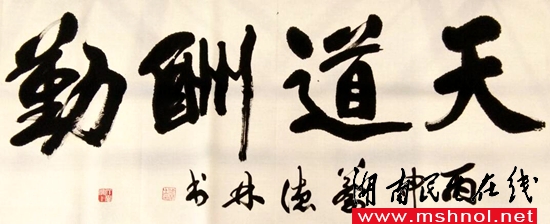 天道酬勤
德林书
湖南民生在线
www.mshnol.net